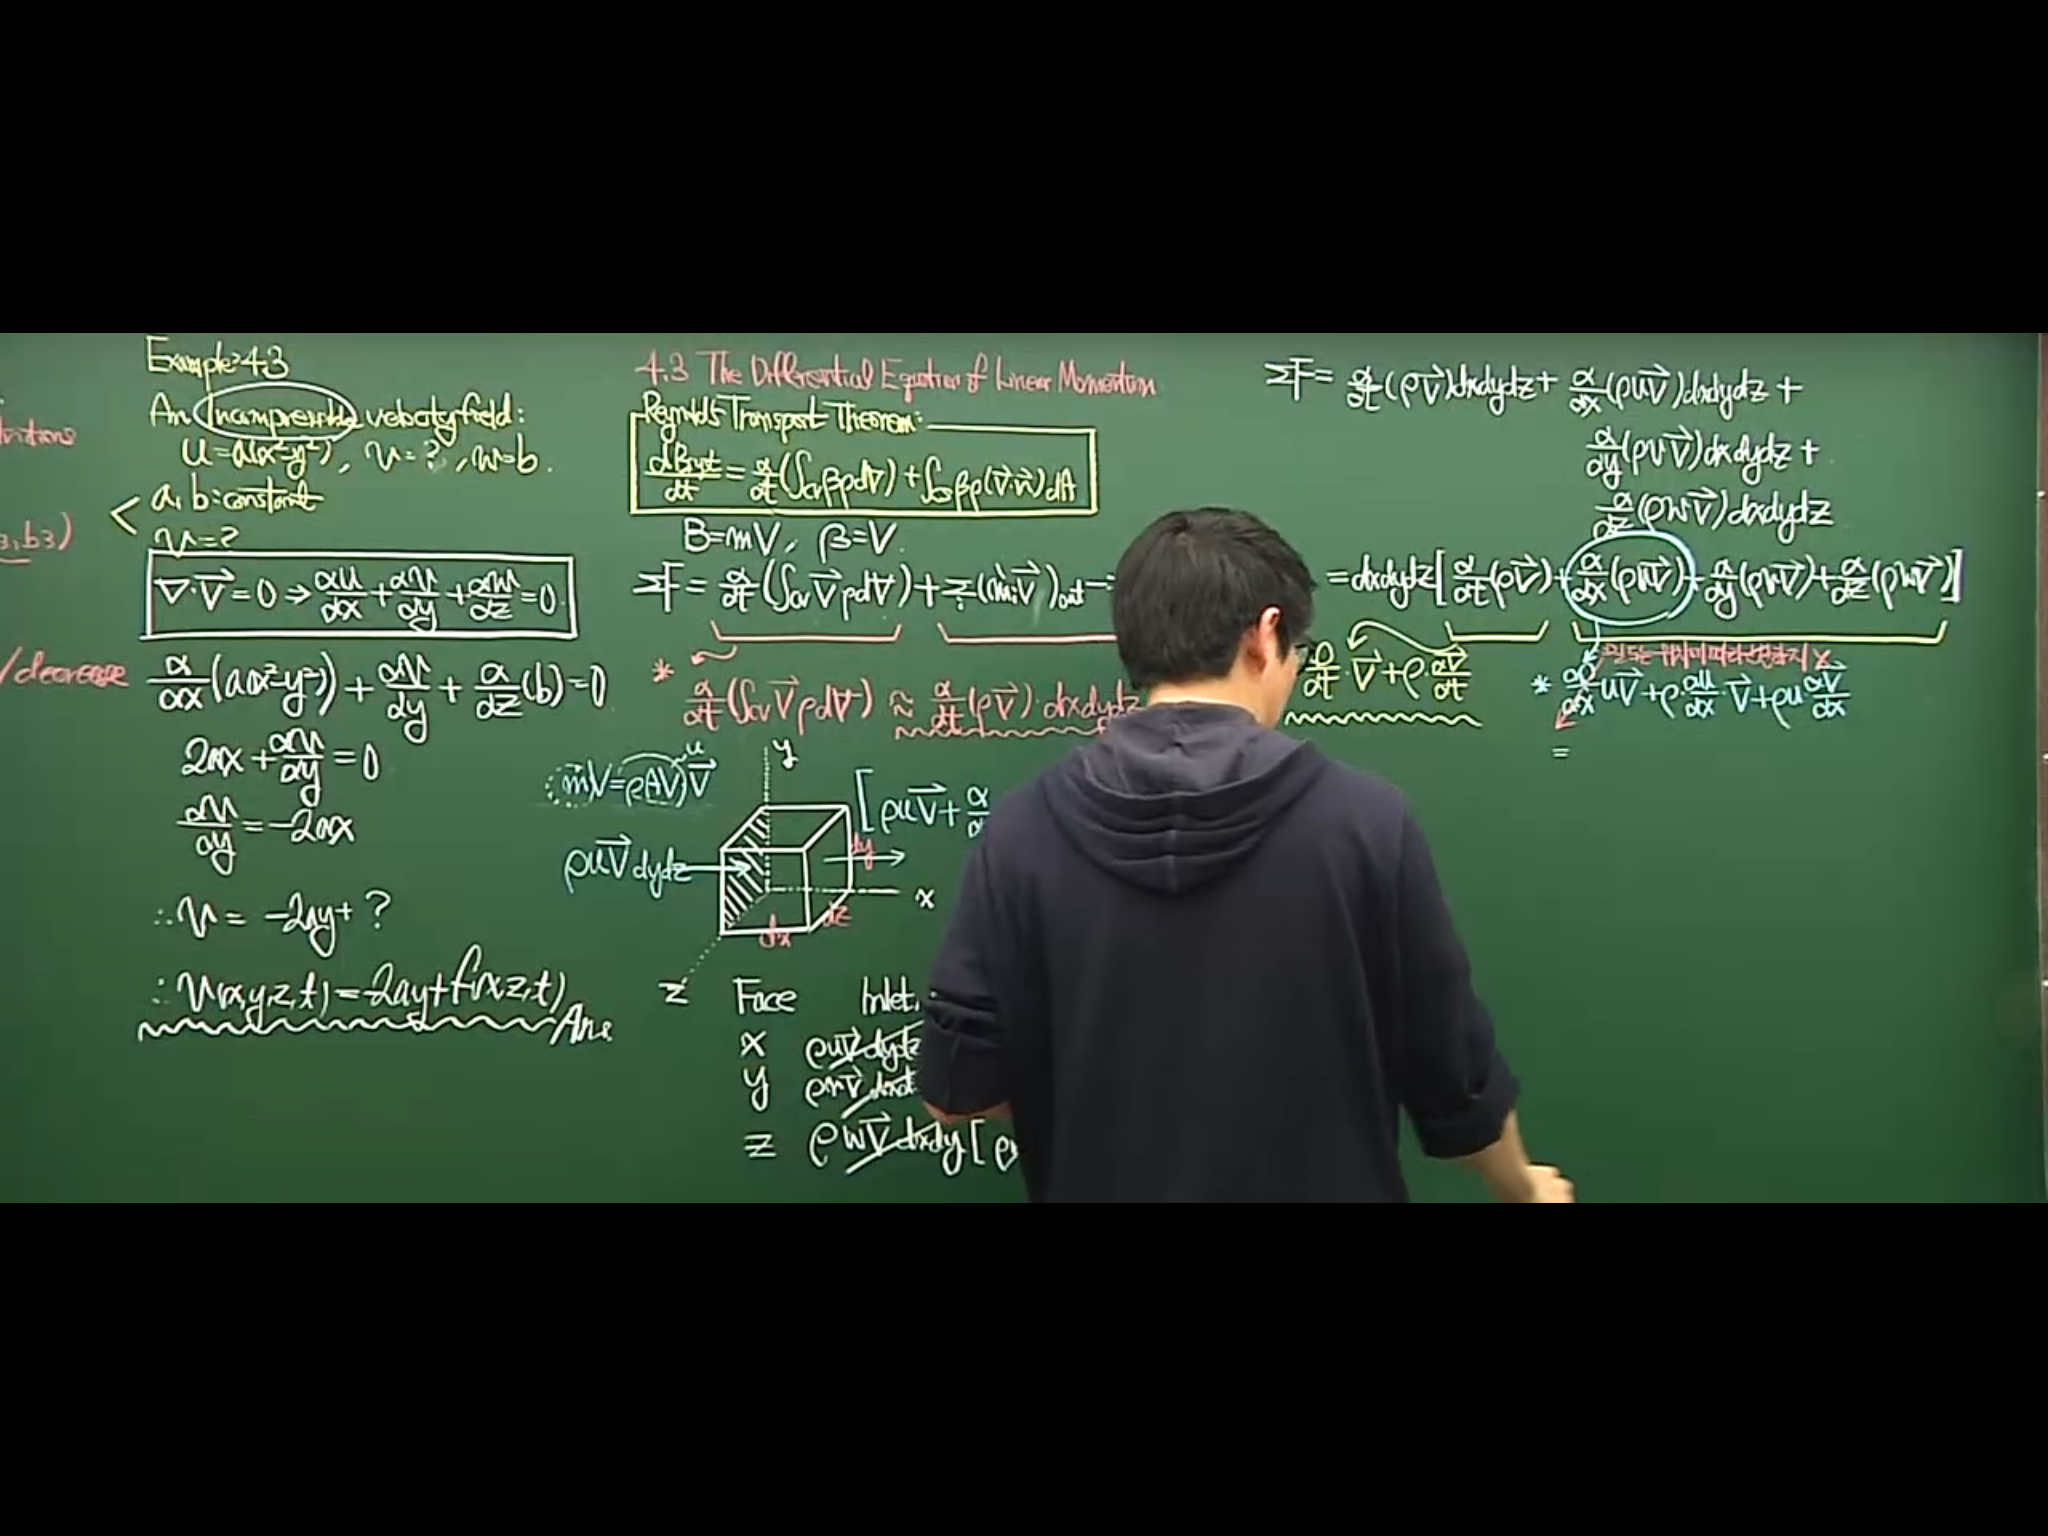 Example 4.3
An Incompressible velocity field:
u=a(x²-y²), v=?, w=b.
a, b: constant
v=?
∇·V⃗=0 ⇒ ∂u/∂x+∂v/∂y+∂w/∂z=0
∂/∂x(a(x²-y²))+∂v/∂y+∂/∂z(b)=0
2ax+∂v/∂y=0
∂v/∂y=-2ax
∴v=-2ay+?
∴v(x,y,z,t)=-2ay+f(x,z,t) Ans
3,b3)
/decrease
4.3 The Differential Equation of Linear Momentum
Reynolds Transport Theorem:
dBsyst/dt=∂/∂t(∫cv βρdV)+∫cs βρ(V⃗·n⃗)dA
B=mV, β=V.
ΣF=∂/∂t(∫cv V⃗ρdV)+Σ(ṁᵢV⃗)out-
* ∂/∂t(∫cv V⃗ρdV)≈∂/∂t(ρV⃗)·dxdydz
ṁV=ρ(AV)V⃗
u
y
[ρuV⃗+∂
ρuV⃗dydz
dy
x
dz
dx
z
Face Inlet
x ρuV⃗dydz
y ρvV⃗dxd
z ρwV⃗dxdy [ρ
ΣF=∂/∂t(ρV⃗)dxdydz+∂/∂x(ρuV⃗)dxdydz+
∂/∂y(ρvV⃗)dxdydz+
∂/∂z(ρwV⃗)dxdydz
=dxdydz[∂/∂t(ρV⃗)+∂/∂x(ρuV⃗)+∂/∂y(ρvV⃗)+∂/∂z(ρwV⃗)]
밀도는 위치에 따라 변하지 X
∂ρ/∂t·V⃗+ρ·∂V⃗/∂t
* ∂ρ/∂x uV⃗+ρ·∂u/∂x·V⃗+ρu∂V⃗/∂x
=